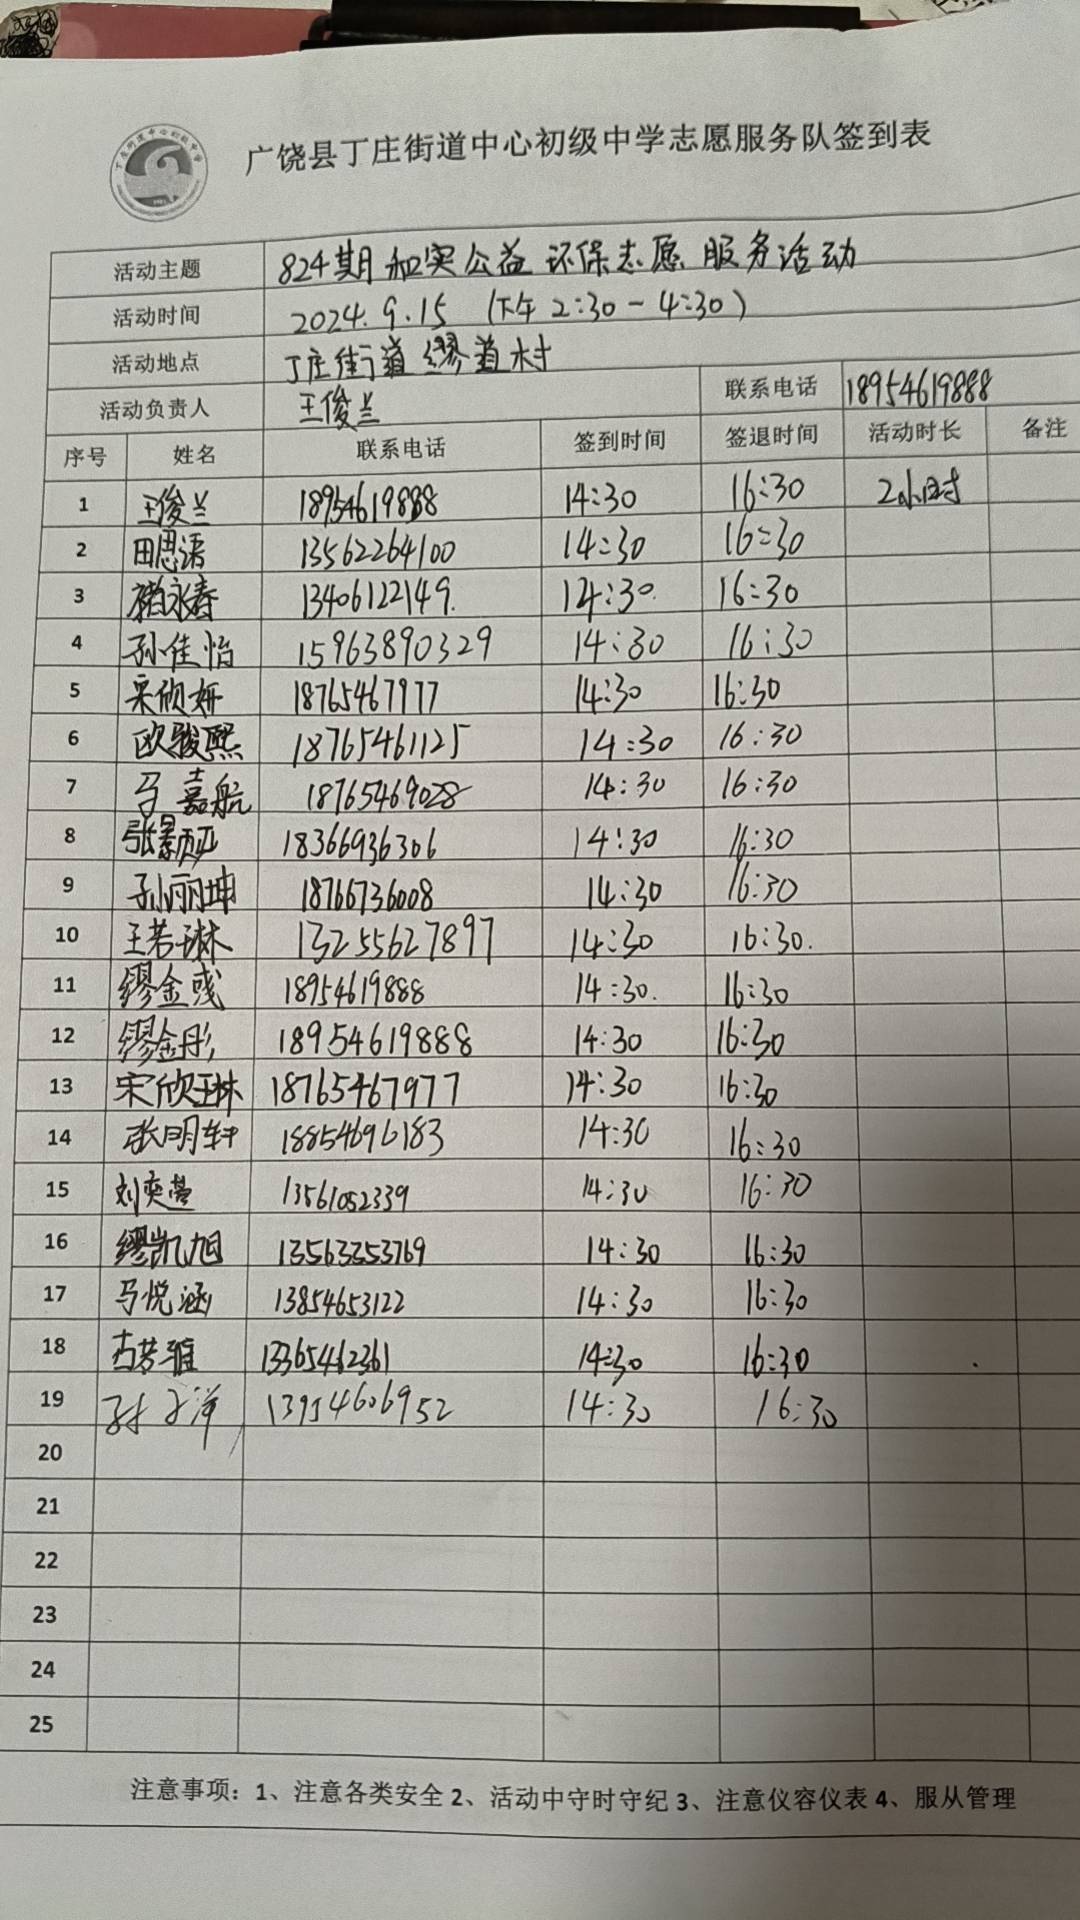 广饶县丁庄街道中心初级中学志愿服务队签到表
活动主题 824期和实公益环保志愿服务活动
活动时间 2024.9.15 (下午2:30-4:30)
活动地点 丁庄街道缪道村
活动负责人 王俊兰 联系电话 18954619888
序号 姓名 联系电话 签到时间 签退时间 活动时长 备注
1 王俊兰 18954619888 14:30 16:30 2小时
2 田思语 13562264100 14:30 16:30
3 褚永春 13406122149. 14:30. 16:30
4 孙佳怡 15963890329 14:30 16:30
5 宋欣妍 18765467977 14:30 16:30
6 欧骏熙 18765461125 14:30 16:30
7 马嘉航 18765469028 14:30 16:30
8 张景 18366936306 14:30 16:30
9 孙丽坤 18766736008 14:30 16:30
10 王若琳 13255627897 14:30 16:30.
11 缪金彧 18954619888 14:30. 16:30
12 缪金彤 18954619888 14:30 16:30
13 宋欣琳 18765467977 14:30 16:30
14 张明轩 18854696183 14:30 16:30
15 刘奕萱 13561052339 14:30 16:30
16 缪凯旭 13563353769 14:30 16:30
17 马悦涵 13854653122 14:30 16:30
18 13365462361 14:30 16:30
19 孙子洋 13954606952 14:30 16:30
20
21
22
23
24
25
注意事项：1、注意各类安全 2、活动中守时守纪 3、注意仪容仪表 4、服从管理